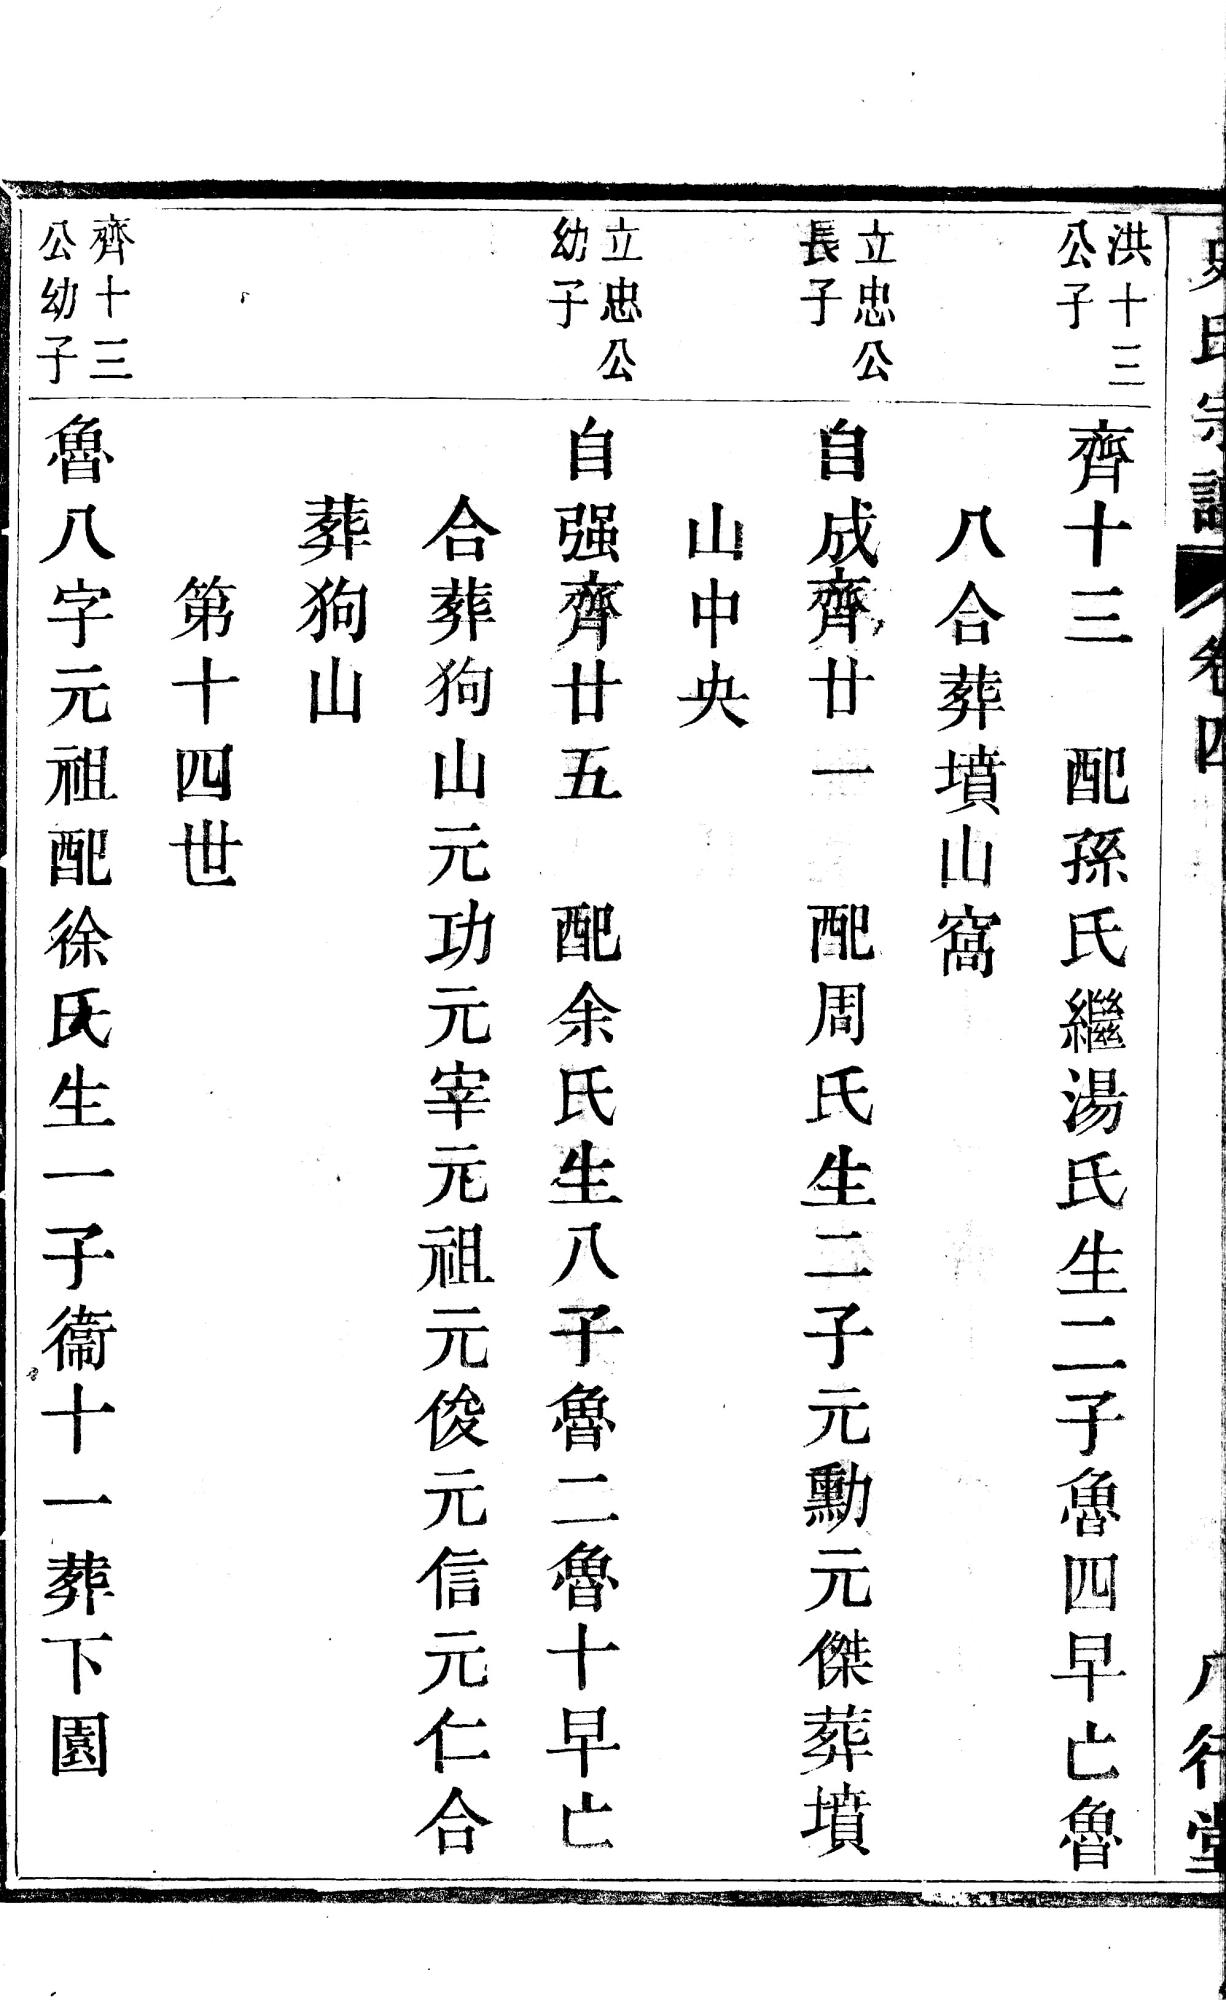 氏宗譜 卷四 行堂
洪十三
公子
齊十三 配孫氏繼湯氏生二子魯四早亡魯
八合葬墳山窩
立忠公
長子
自成齊廿一 配周氏生二子元勳元傑葬墳
山中央
立忠公
幼子
自强齊廿五 配余氏生八子魯二魯十早亡
合葬狗山元功元宰元祖元俊元信元仁合
葬狗山
第十四世
齊十三
公幼子
魯八字元祖配徐氏生一子衞十一葬下園